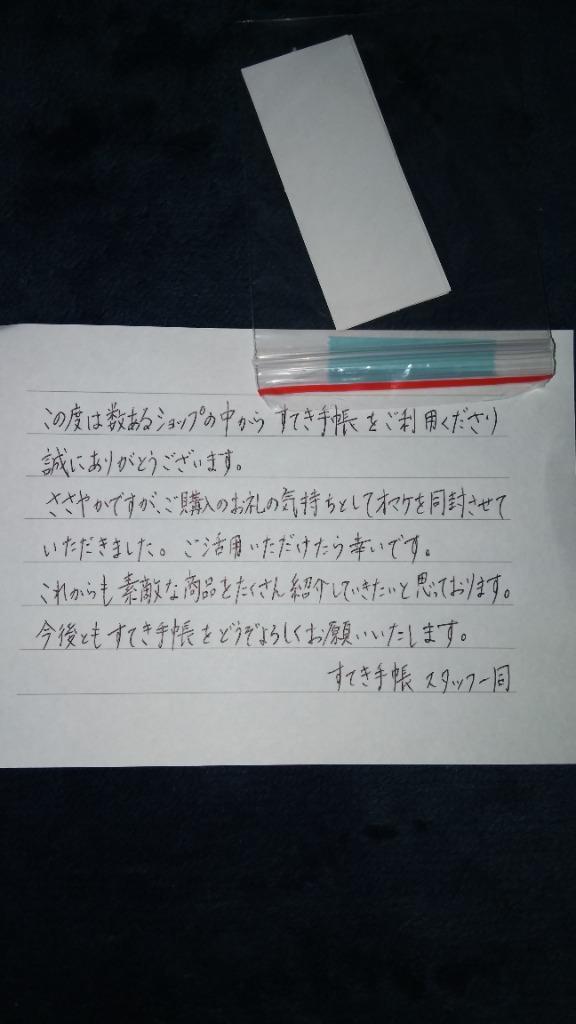 この度は数あるショップの中から すてき手帳をご利用くださり
誠にありがとうございます。
ささやかですが、ご購入のお礼の気持ちとしてオマケを同封させて
いただきました。ご活用いただけたら幸いです。
これからも素敵な商品をたくさん紹介していきたいと思っております。
今後ともすてき手帳をどうぞよろしくお願いいたします。
すてき手帳 スタッフ一同